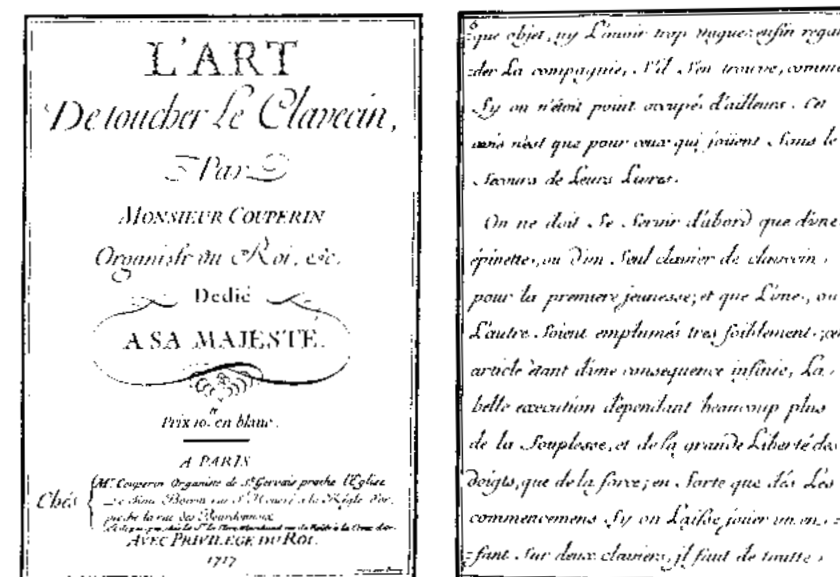 L'ART
De toucher Le Clavecin,
Par
MONSIEUR COUPERIN
Organiste du Roi, etc.
Dedié
A SA MAJESTÉ.
Prix 10.# en blanc.
A PARIS
Chés
Mr. Couperin Organiste de St. Gervais proche l'Eglise
Le Sieur Boivin rue St. Honoré a la Régle d'or,
proche la rue des Bourdonnois
AVEC PRIVILEGE DU ROI.
1717
que objet, ny L'avoir trop vague: enfin regar
=der La compagnie, S'il S'en trouve, comme
Sy on n'étoit point occupés d'ailleurs. Cet
avis n'est que pour ceux qui joüent Sans le
Secours de Leurs Livres.
On ne doit Se Servir d'abord que d'une
épinette, ou d'un Seul clavier de clavecin,
pour la premiere jeunesse; et que L'une, ou
L'autre Soient emplumés tres foiblement; cet
article étant d'une consequence infinie, La
belle execution dépendant beaucoup plus
de la Souplesse, et de la grande Liberté des
doigts, que de la force; en Sorte que dés Les
commencemens Sy on Laisse joüer un en=
=fant Sur deux claviers, il faut de toutte